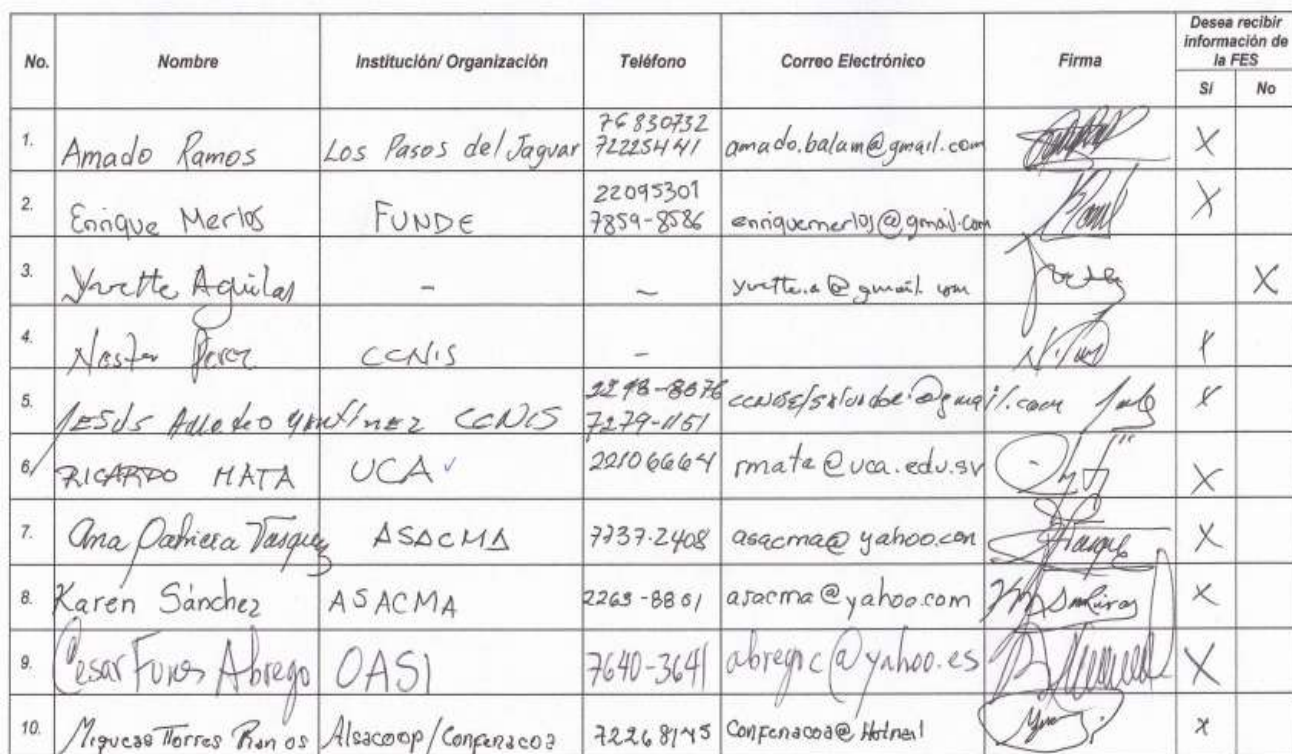 No. Nombre Institución/ Organización Teléfono Correo Electrónico Firma Desea recibir información de la FES
Sí No
1. Amado Ramos Los Pasos del Jaguar 76830732 72225441 amado.balam@gmail.com X
2. Enrique Merlos FUNDE 22095301 7859-8586 enriquemerlos@gmail.com X
3. Yvette Aguilar - - yvette.a@gmail.com X
4. Nestor Perez CCNIS - X
5. JESUS CCNIS 7279-1151 X
6. RICARDO MATA UCA 22106664 rmata@uca.edu.sv X
7. Ana Vasquez ASACMA 7737-2408 asacma@yahoo.com X
8. Karen Sánchez ASACMA 2263-8801 asacma@yahoo.com X
9. Cesar Funes Abrego OASI 7640-3641 abregoc@yahoo.es X
10. Torres Ramos Alsacoop/Confenacoa 72268145 X